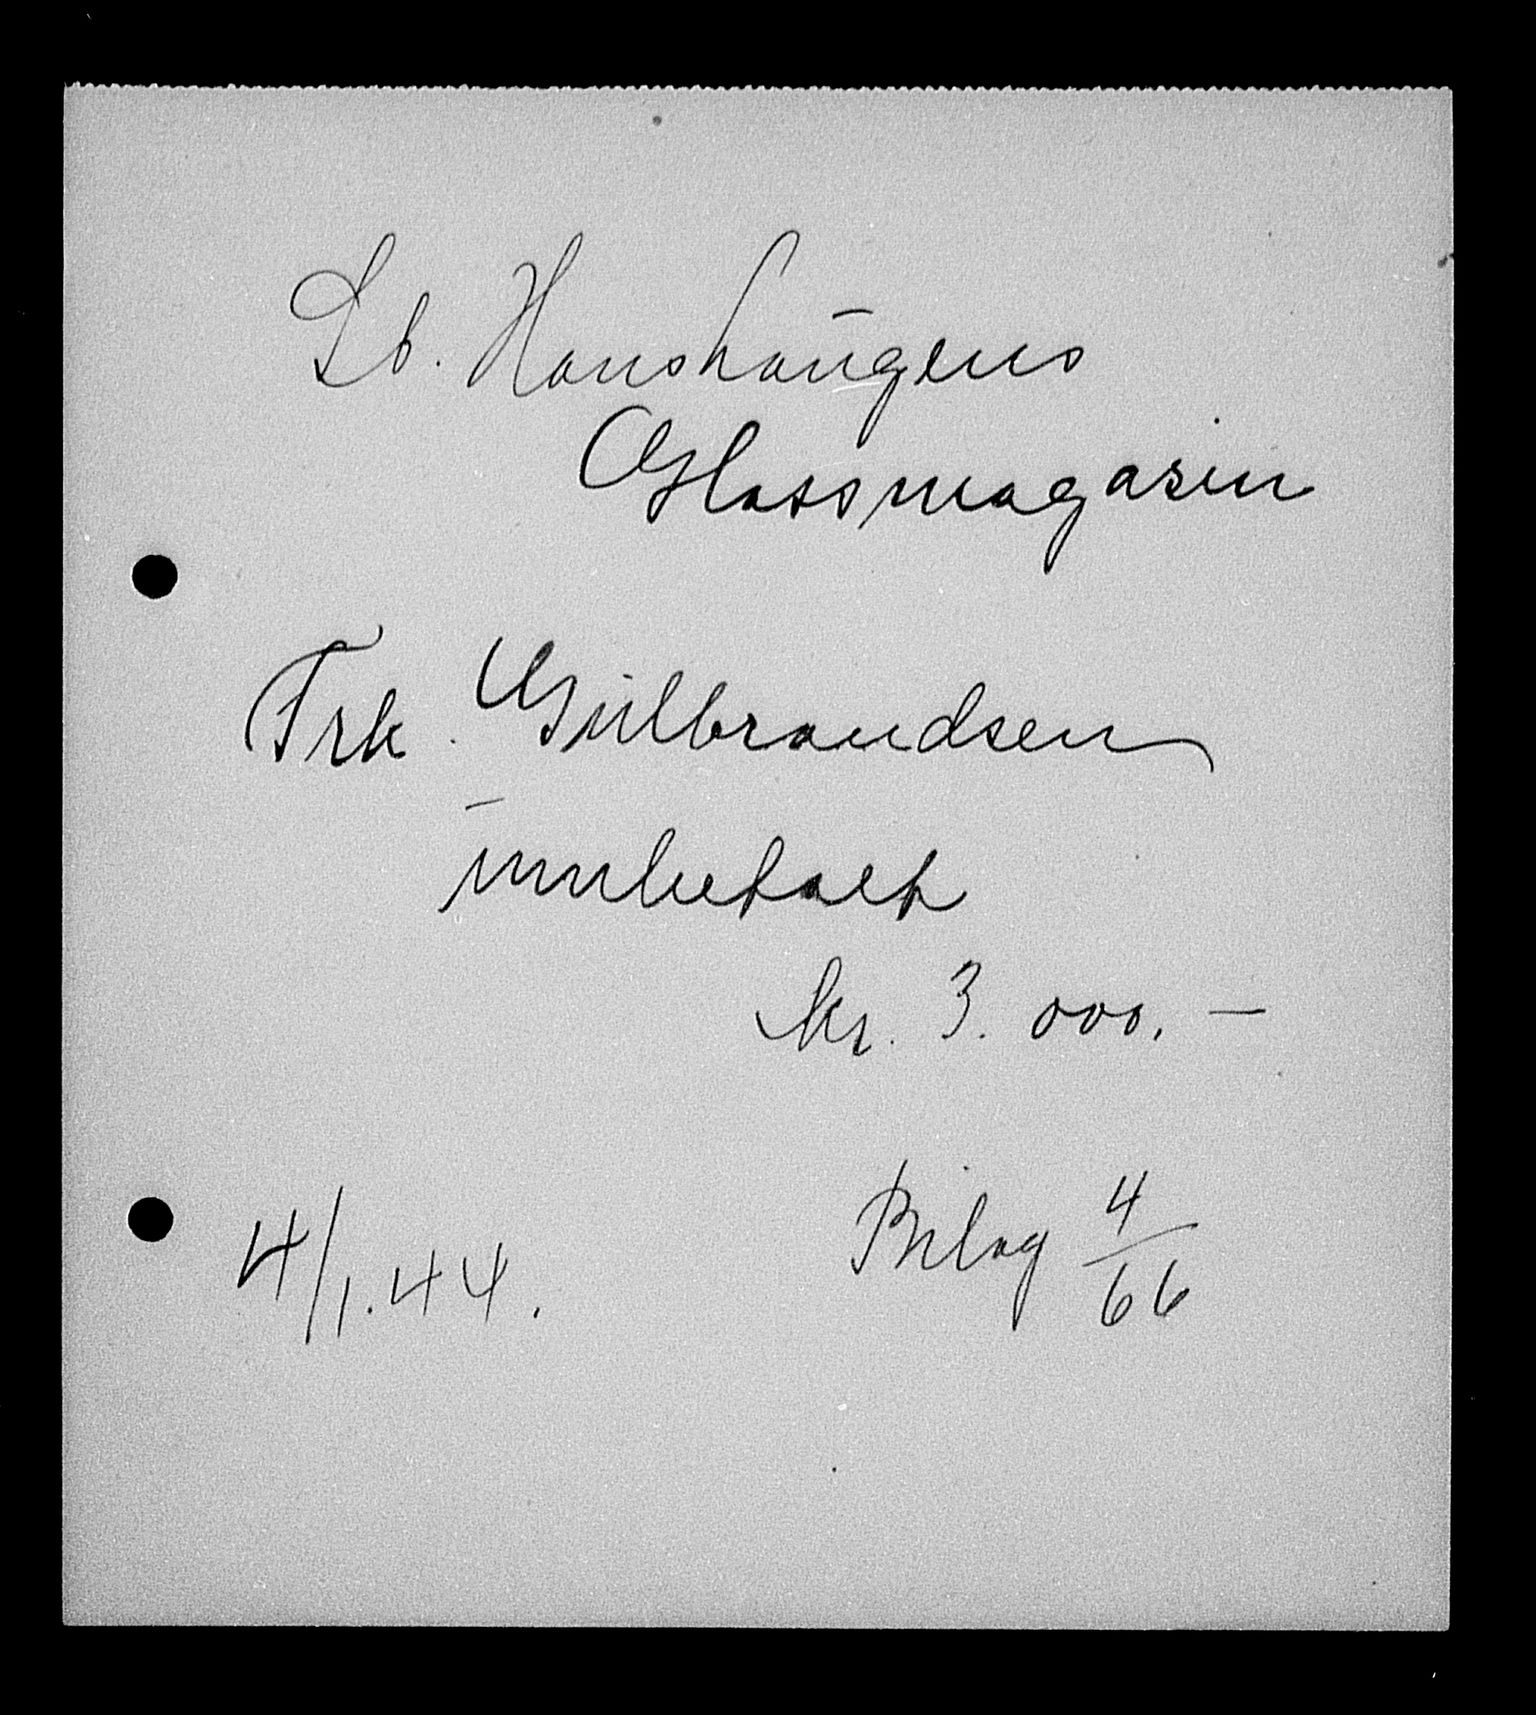 Lb. Hanshaugens
Glassmagasin
Frk. Gulbrandsen
innbetalt
kr. 3.000.—
4/1.44.
Bilag 4/66